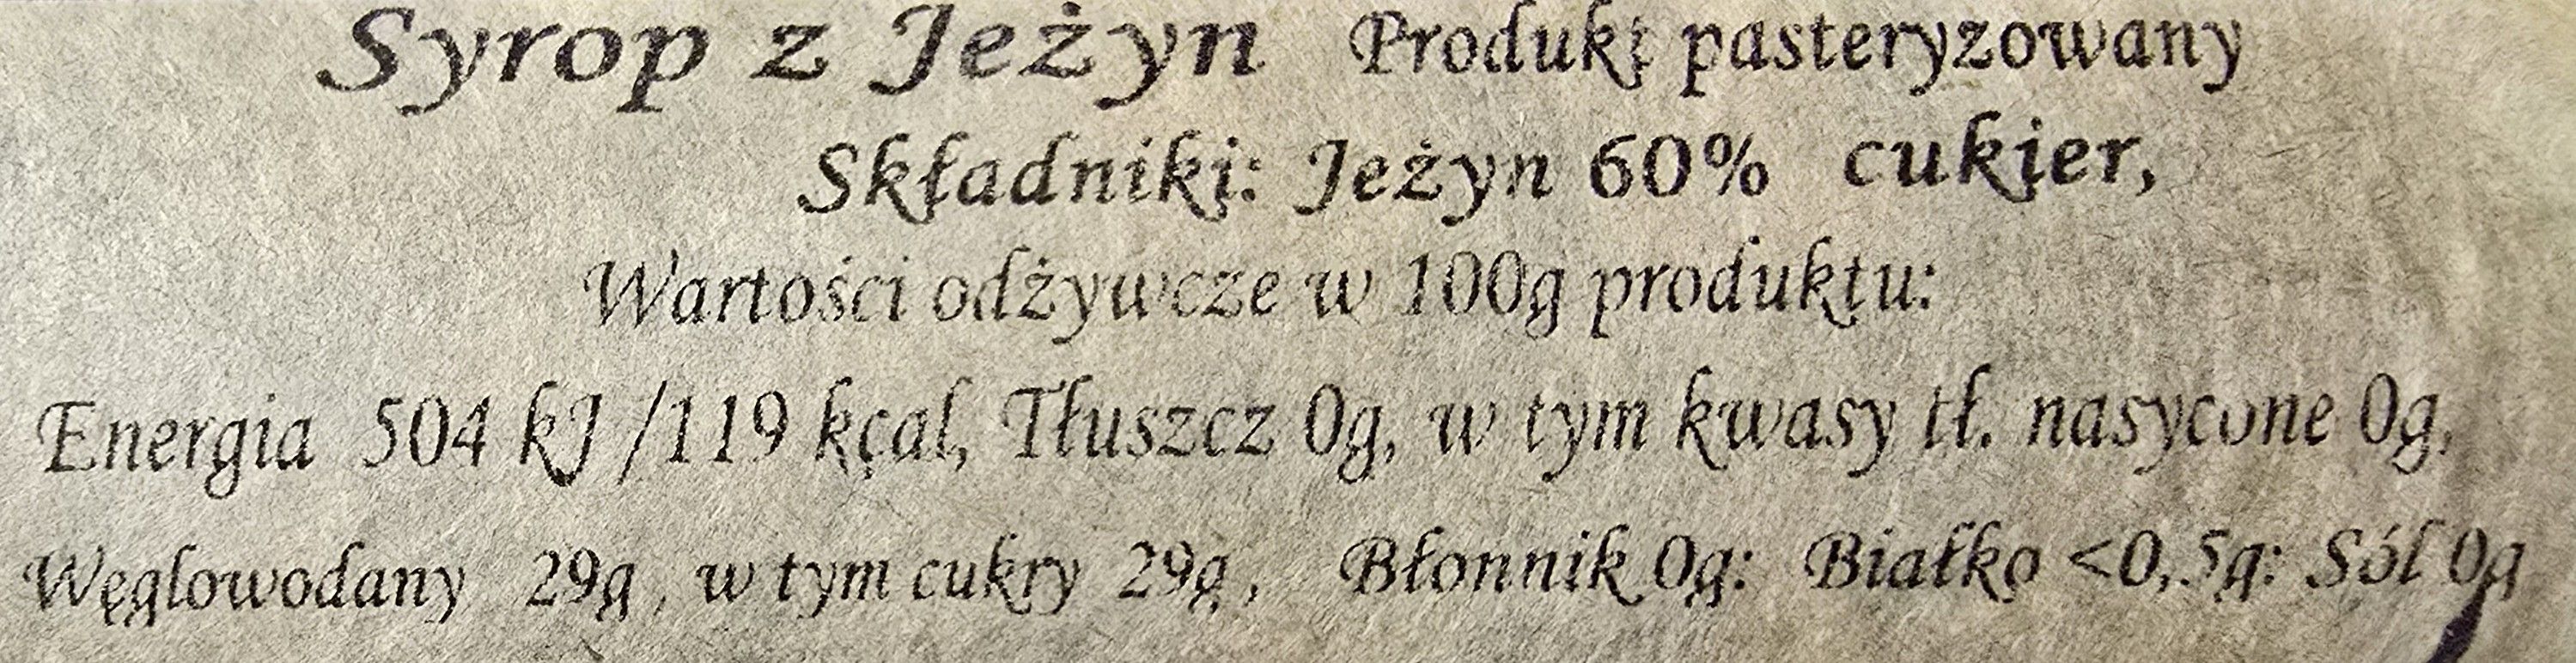 Syrop z Jeżyn Produkt pasteryzowany
Składniki: Jeżyn 60% cukier,
Wartości odżywcze w 100g produktu:
Energia 504 kJ /119 kcal, Tłuszcz 0g, w tym kwasy tł. nasycone 0g,
Węglowodany 29g, w tym cukry 29g, Błonnik 0g: Białko <0,5g: Sól 0g